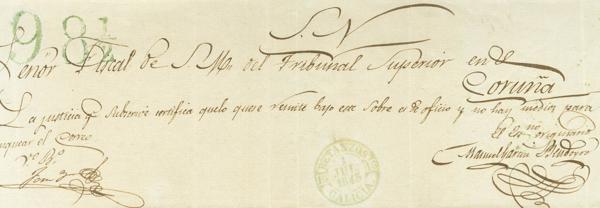 98½
S. N.
Señor Fiscal de S. M. del Tribunal Superior en el
Coruña
La justicia q. Subscrive certifica que lo que se remite bajo este Sobre es de oficio y no hay medios para
franquear el Correo
Vº Bº
El Es.no originario
Manuel Garcia
BETANZOS
1
1845
GALICIA